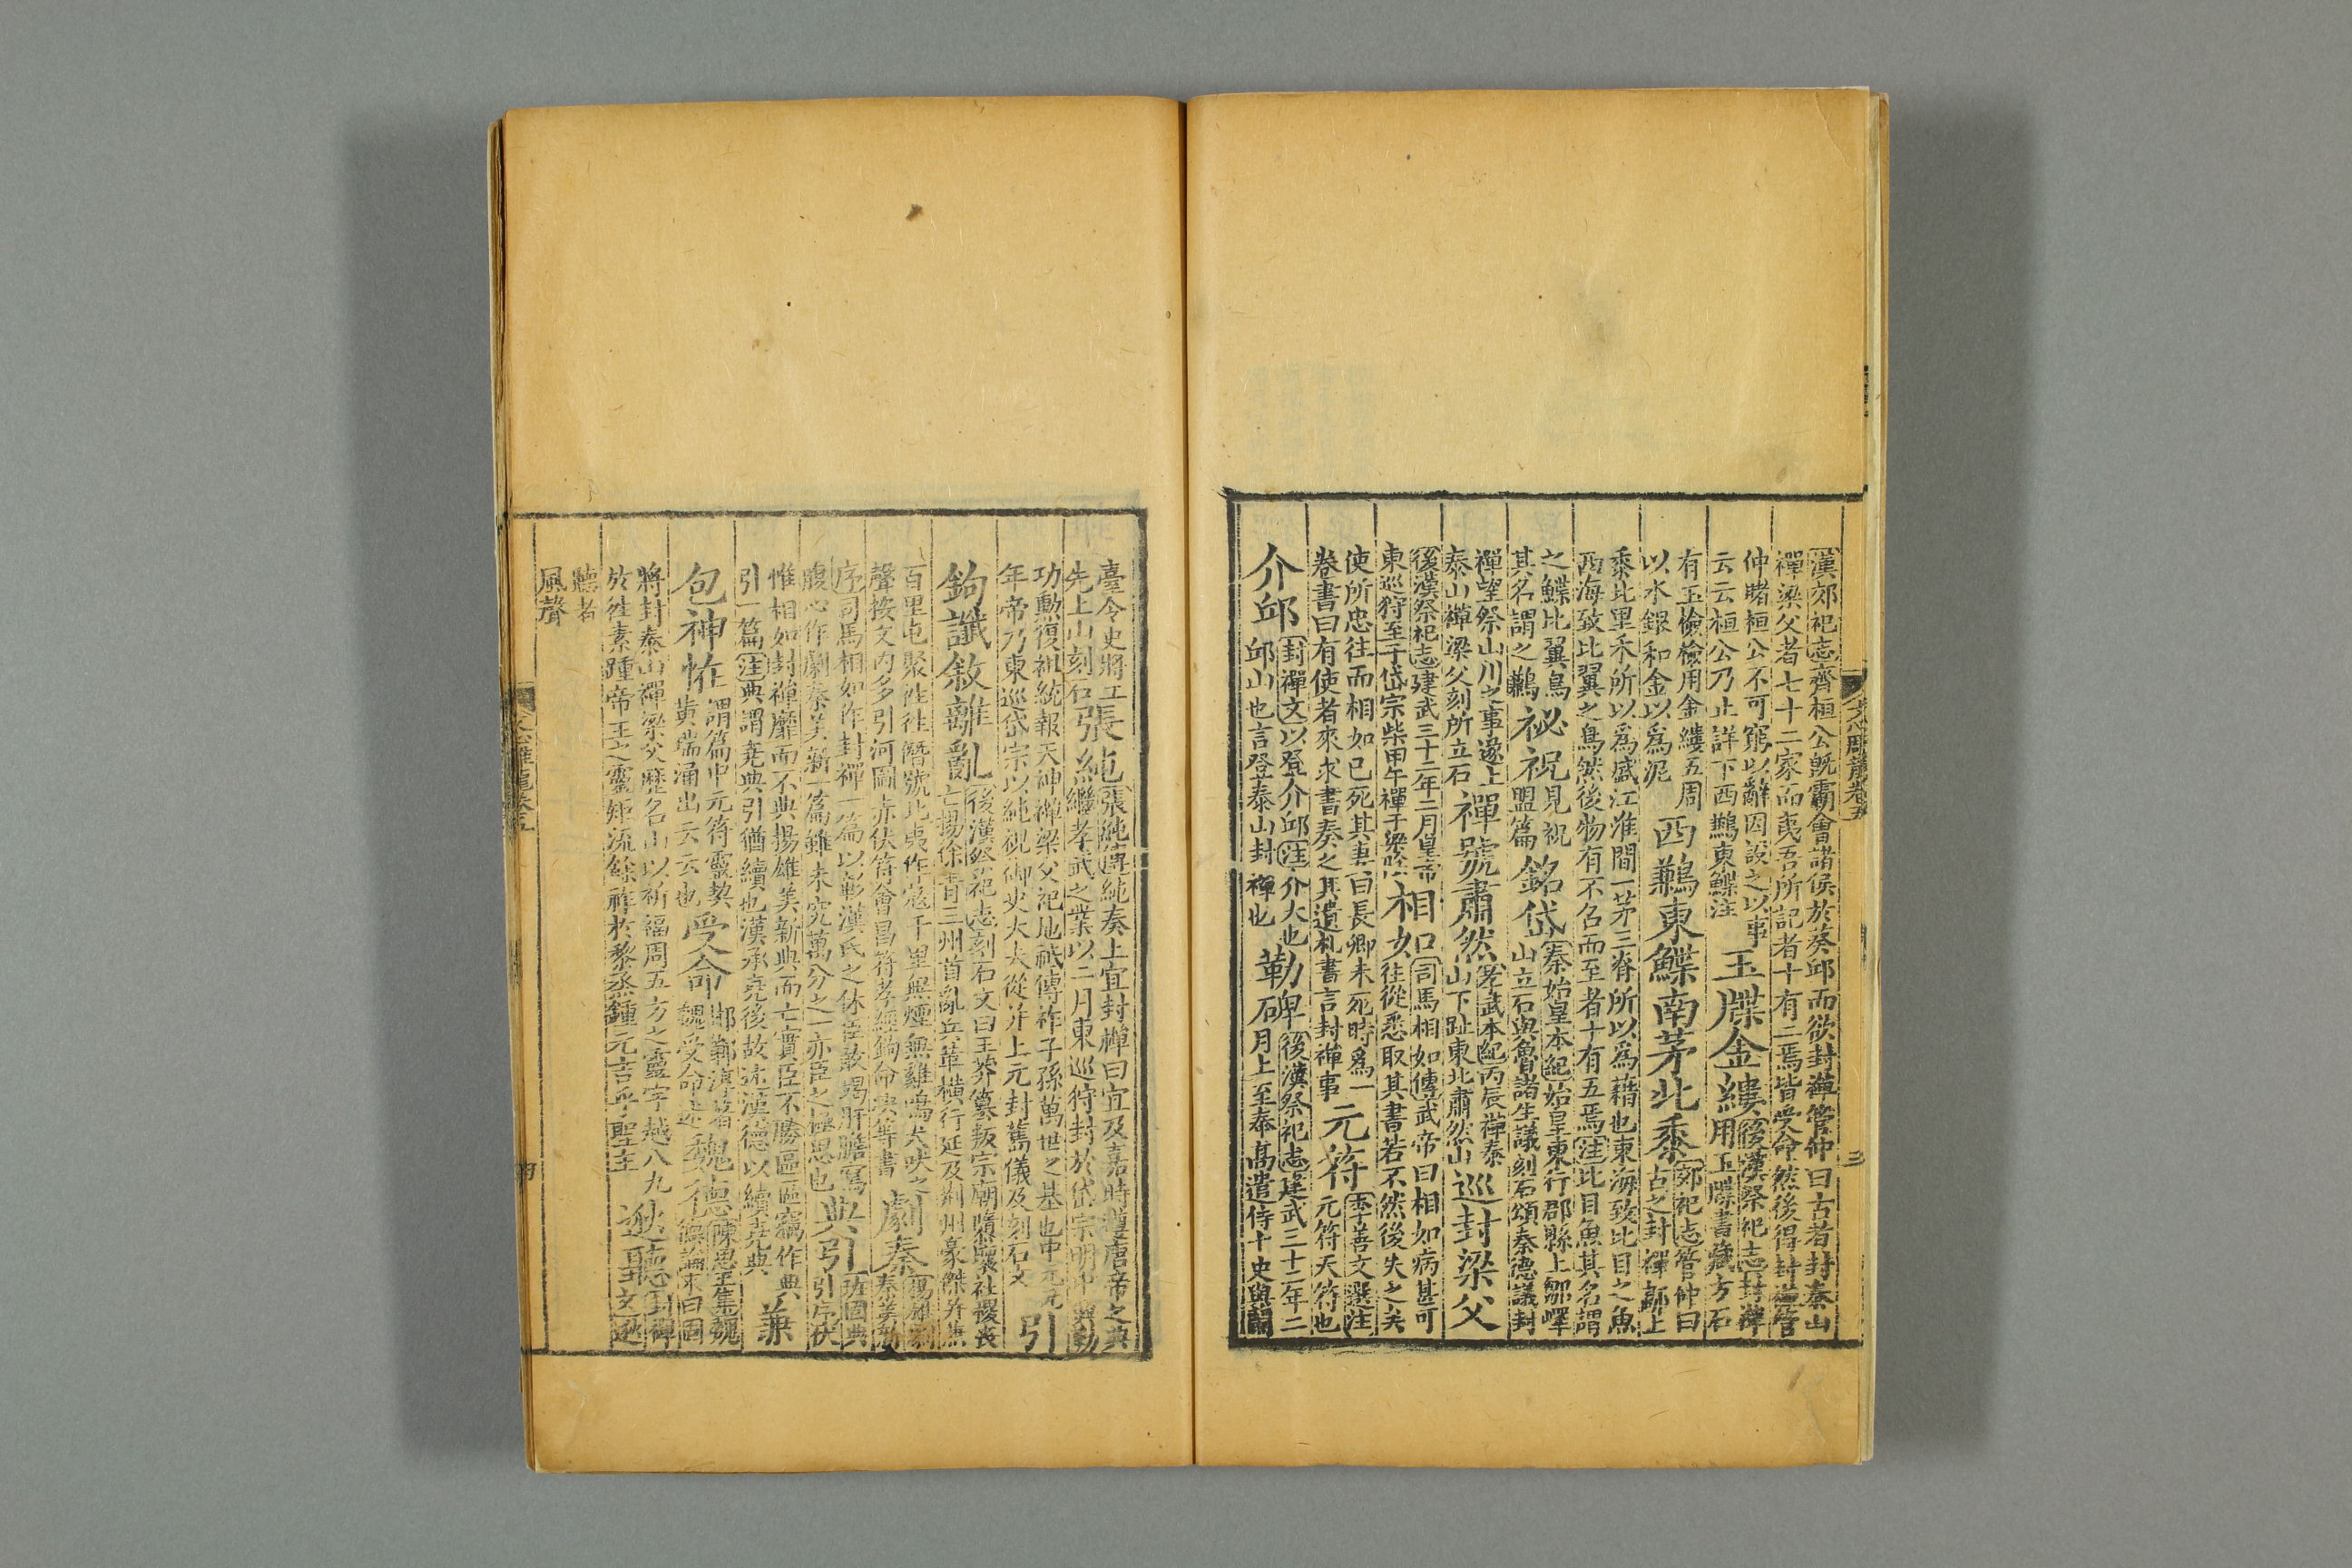 文心雕龍卷五
三
漢郊祀志齊桓公旣霸會諸侯於葵邱而欲封禪管仲曰古者封泰山
禪梁父者七十二家而夷吾所記者十有二焉皆受命然後得封禪管
仲睹桓公不可窮以辭因設之以事
云云桓公乃止詳下西鶼東鰈注
玉牒金縷
後漢祭祀志封禪
用玉牒書藏方石
有玉檢檢用金縷五周
以水銀和金以爲泥
西鶼東鰈南茅北黍
郊祀志管仲曰
古之封禪鄗上
黍北里禾所以爲盛江淮間一茅三脊所以爲藉也東海致比目之魚
西海致比翼之鳥然後物有不召而至者十有五焉注比目魚其名謂
之鰈比翼鳥
其名謂之鶼
祕祝
見祝
盟篇
銘岱
秦始皇本紀始皇東行郡縣上鄒嶧
山立石與魯諸生議刻石頌秦德議封
禪望祭山川之事遂上
泰山禪梁父刻所立石
禪號肅然
孝武本紀丙辰禪泰
山下趾東北肅然山
巡封梁父
後漢祭祀志建武三十二年二月皇帝
東巡狩至于岱宗柴甲午禪于梁陰
相如
司馬相如傳武帝曰相如病甚可
往從悉取其書若不然後失之矣
使所忠往而相如已死其妻曰長卿未死時爲一
卷書曰有使者來求書奏之其遺札書言封禪事
元符
李善文選注
元符天符也
介邱
封禪文以登介邱注介大也
邱山也言登泰山封禪也
勒碑
後漢祭祀志建武三十二年二
月上至奉高遣侍十史與蘭
臺令史將工
先上山刻石
張純
張純傳純奏上宜封禪曰宜及嘉時遵唐帝之典
繼孝武之業以二月東巡狩封於岱宗明中興勒
功勳復祖統報天神禪梁父祀地祇傳祚子孫萬世之基也中元元
年帝乃東巡岱宗以純視御史大夫從并上元封舊儀及刻石文
引
鉤讖敘離亂
後漢祭祀志刻石文曰王莽篡叛宗廟隳壞社稷喪
亡揚徐青三州首亂兵革橫行延及荆州豪傑并兼
百里屯聚往往僭號北夷作寇千里無煙無雞鳴犬吠之
聲按文内多引河圖赤伏符會昌符孝經鉤命決等書
劇秦
揚雄劇
秦美新
序司馬相如作封禪一篇以彰漢氏之休臣敢竭肝膽寫
腹心作劇秦美新一篇雖未究萬分之一亦臣之極思也
典引
班固典
引序伏
惟相如封禪靡而不典揚雄美新典而亡實臣不勝區區竊作典
引一篇注典謂堯典引猶續也漢承堯後故述漢德以續堯典
兼
包神怪
謂篇中元符靈契
黃瑞涌出云云也
受命
邯鄲淳著
魏受命述
魏德
陳思王集魏
德論末曰固
將封泰山禪梁父歷名山以祈福周五方之靈宇越八九
於往素踵帝王之靈矩流餘祚於黎烝鍾元吉乎聖主
逖聽
封禪
文逖
聽者
風聲
文心雕龍卷五
四